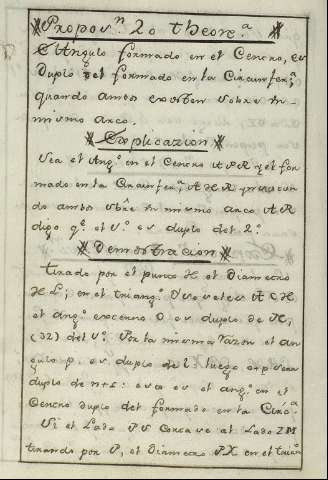 Propos.ⁿ 20 theor.ᵃ
El Angulo formado en el Centro, es
Duplo del formado en la Circunfer.ᵃ
quando ambos existen sobre un
mismo arco.
Explicazion
Sea el Ang.º en el Centro APR y el for
mado en la Circunfer.ᵃ AHR insistiendo
ambos sobre un mismo arco AR
digo q.º el 1.º es duplo del 2.º
Demostracion
tirado por el punto H el Diametro
HL; en el triang.º
el ang.º externo O es duplo de N,
(32) del 1.º Por la misma razon el an
gulo p. es duplo de l: luego o+p sera
duplo de n+l: esto es el ang.º en el
Centro duplo del formado en la Circ.ᵃ
Si el Lado PS al Lado ZM
tirando por P, el Diametro PX en el trian